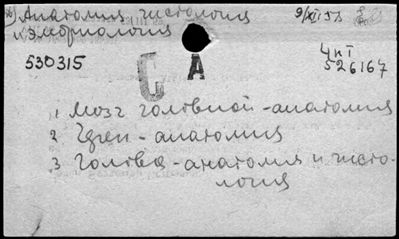 Анатомия гистология 9/XII 53
и эмбриология
530315
Чкт
526167
С А
1 Мозг головной - анатомия
2 Череп - анатомия
3 Голова - анатомия и гисто-
логия